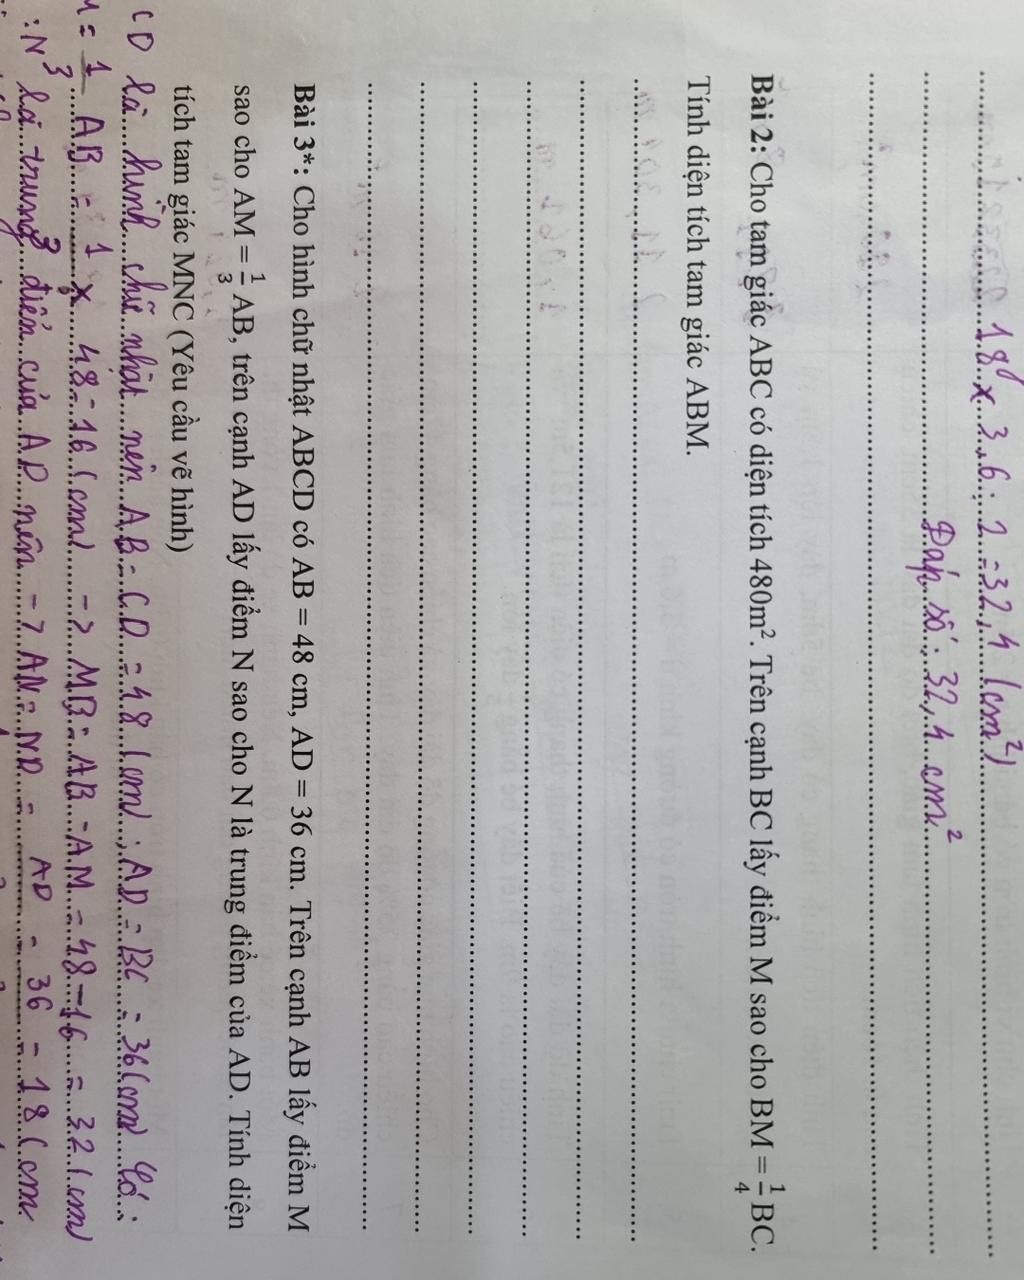 18 x 3,6 : 2 = 32,4 (cm²)
Đáp số: 32,4 cm²
Bài 2: Cho tam giác ABC có diện tích 480m². Trên cạnh BC lấy điểm M sao cho BM = 1/4 BC.
Tính diện tích tam giác ABM.
Bài 3*: Cho hình chữ nhật ABCD có AB = 48 cm, AD = 36 cm. Trên cạnh AB lấy điểm M
sao cho AM = 1/3 AB, trên cạnh AD lấy điểm N sao cho N là trung điểm của AD. Tính diện
tích tam giác MNC (Yêu cầu vẽ hình)
CD là hình chữ nhật nên AB = CD = 48 (cm); AD = BC = 36 (cm) Có:
M = 1/3 AB = 1/3 x 48 = 16 (cm) -> MB = AB - AM = 48 - 16 = 32 (cm)
: N là trung điểm của AD nên -> AN = ND = AD = 36 = 18 (cm